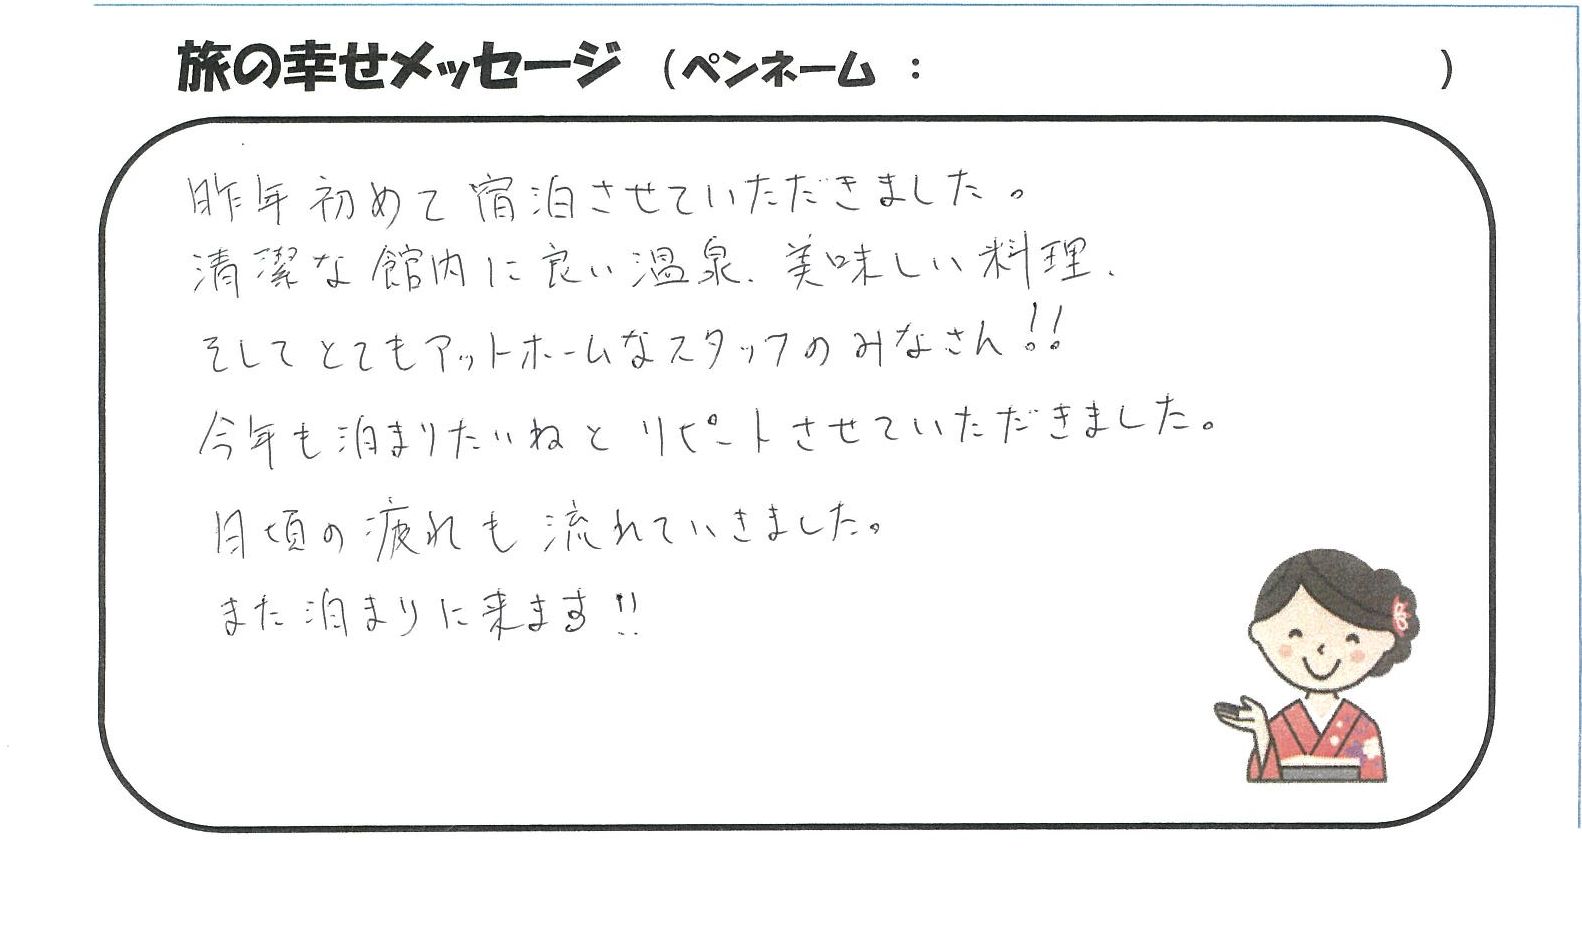 旅の幸せメッセージ （ペンネーム ： ）
昨年初めて宿泊させていただきました。
清潔な館内に良い温泉、美味しい料理、
そしてとてもアットホームなスタッフのみなさん!!
今年も泊まりたいねとリピートさせていただきました。
日頃の疲れも流れていきました。
また泊まりに来ます!!